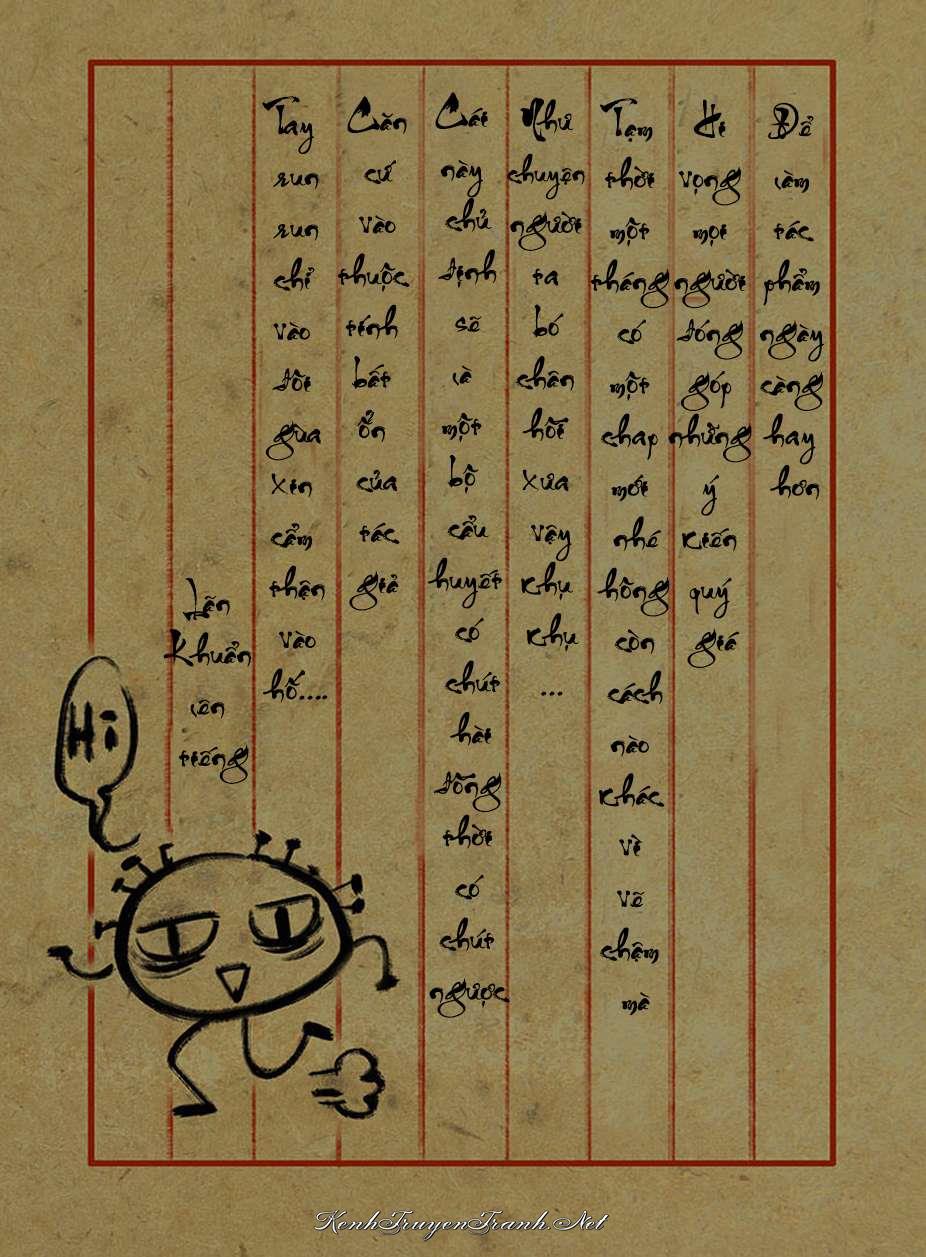 Để làm tác phẩm ngày càng hay hơn
Hi vọng mọi người đóng góp những ý kiến quý giá
Tạm thời một tháng có một chap mới nhé hồng còn cách nào khác vì vẽ chậm mà
Như chuyện người ta bó chân hồi xưa vậy khụ khụ ...
Cái này chủ định sẽ là một bộ cẩu huyết có chút hài đồng thời có chút ngược
Căn cứ vào thuộc tính bất ổn của tác giả
Tay run run chỉ vào đồi gùa xin cẩm thận vào hố....
Lãn Khuẩn lên tiếng
Hi
KenhTruyenTranh.Net